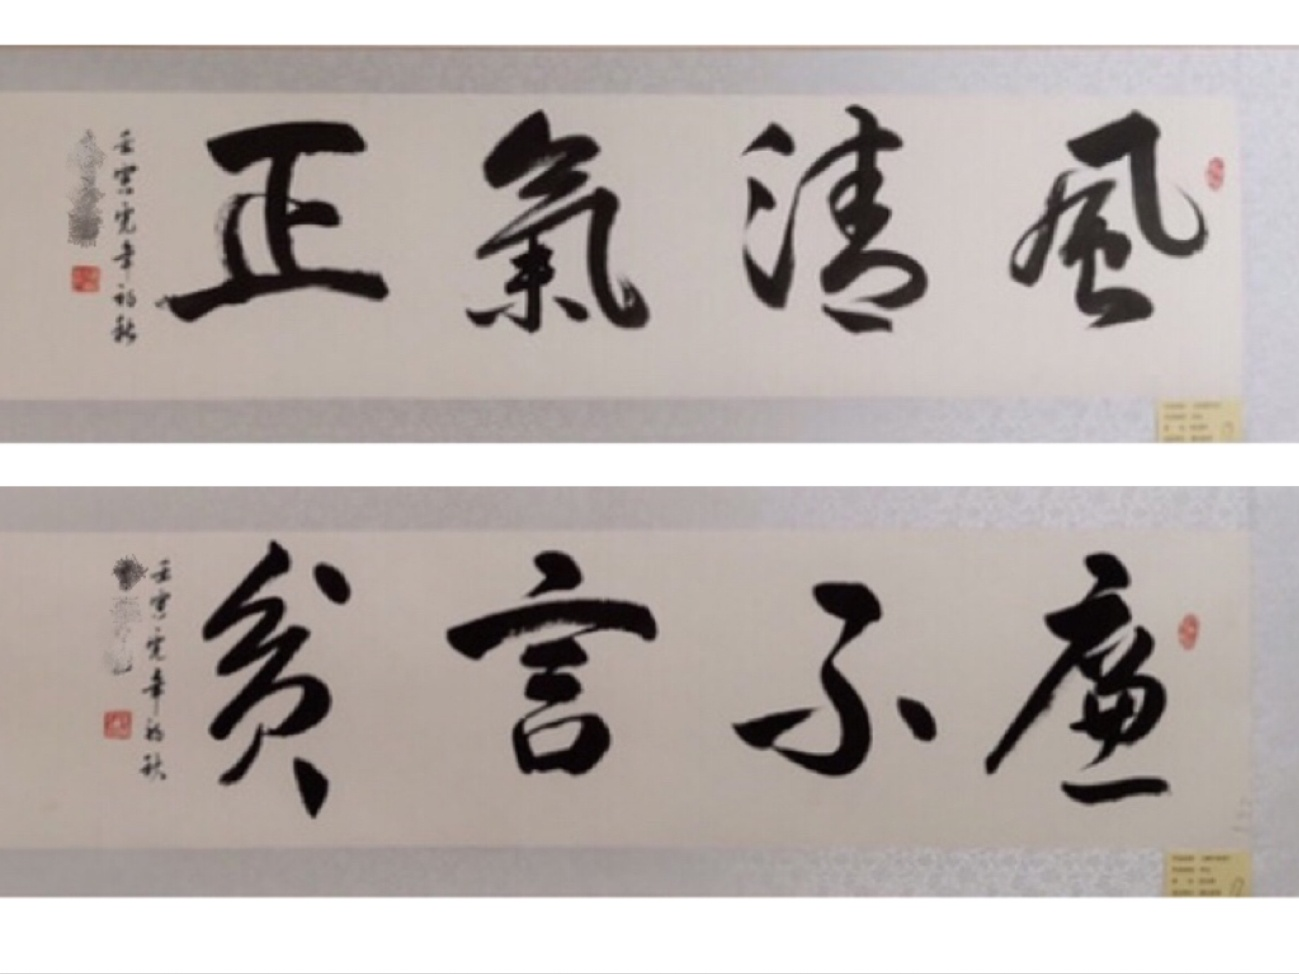 風清氣正
壬寅虎年初秋
廉不言貧
壬寅虎年初秋